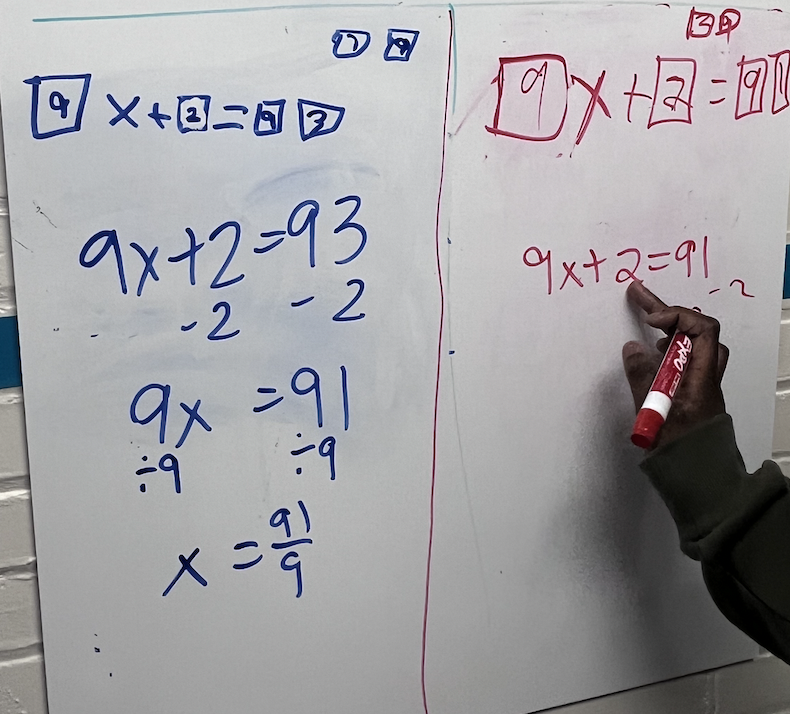 9 x + 2 = 9 3
9x+2=93
-2 -2
9x =91
÷9 ÷9
x = 91/9
9 x + 2 = 9 1
9x+2=91
-2
EXPO